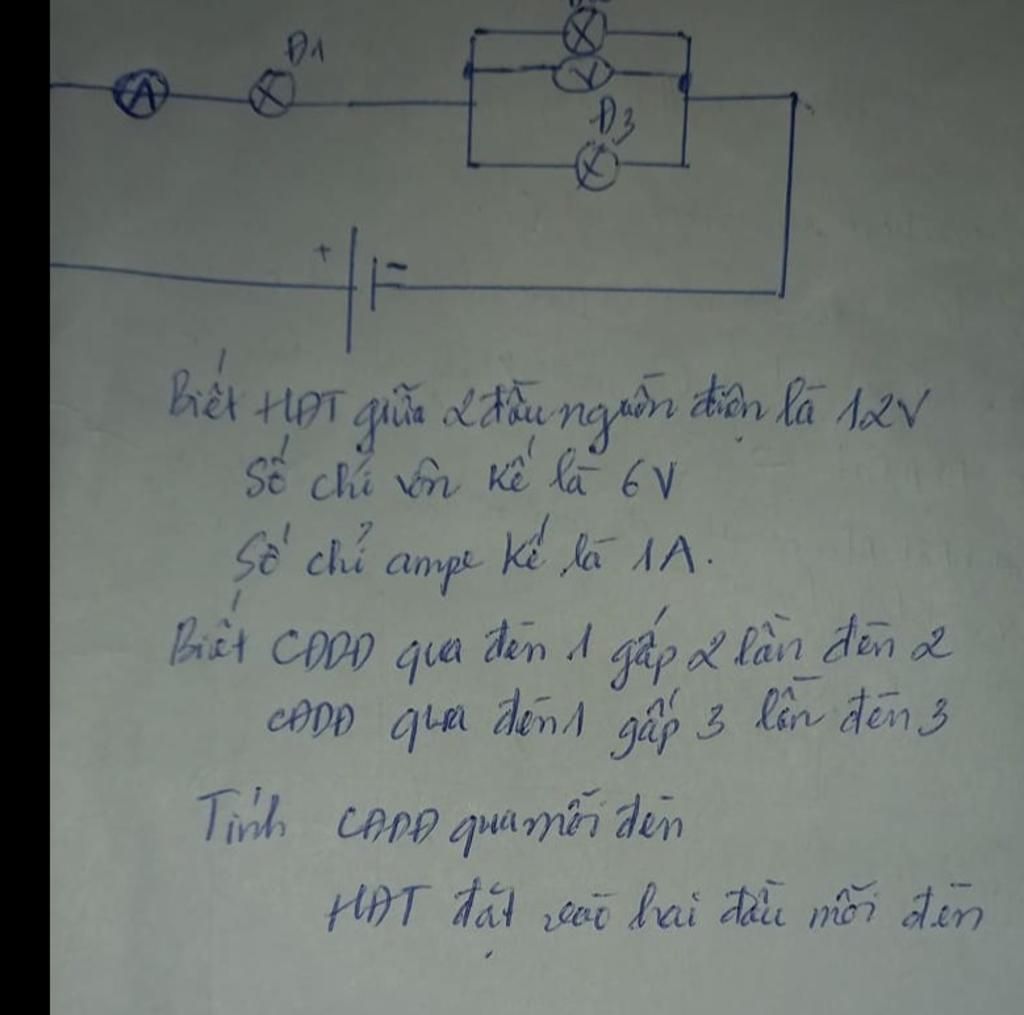 Đ1
A
V
Đ3
+
Biết HĐT giữa 2 đầu nguồn điện là 12V
Số chỉ vôn kế là 6V
Số chỉ ampe kế là 1A.
Biết CĐDĐ qua đèn 1 gấp 2 lần đèn 2
CĐDĐ qua đèn 1 gấp 3 lần đèn 3
Tính CĐDĐ qua mỗi đèn
HĐT đặt vào hai đầu mỗi đèn